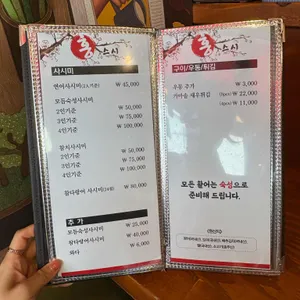 홍스시
사시미
연어사시미(2人기준) ₩ 45,000
모듬숙성사시미
2인기준 ₩ 50,000
3인기준 ₩ 75,000
4인기준 ₩ 100,000
참치사시미 ₩ 50,000
2인기준 ₩ 75,000
3인기준 ₩ 100,000
4인기준
₩ 80,000
추 가
모듬숙성사시미 ₩ 25,000
참다랑어사시미 ₩ 40,000
₩ 6,000
홍스시
구이/우동/튀김
우동 추가 ₩ 3,000
새우튀김 ₩ 22,000
₩ 11,000
모든 활어는 숙성으로
준비해 드립니다.